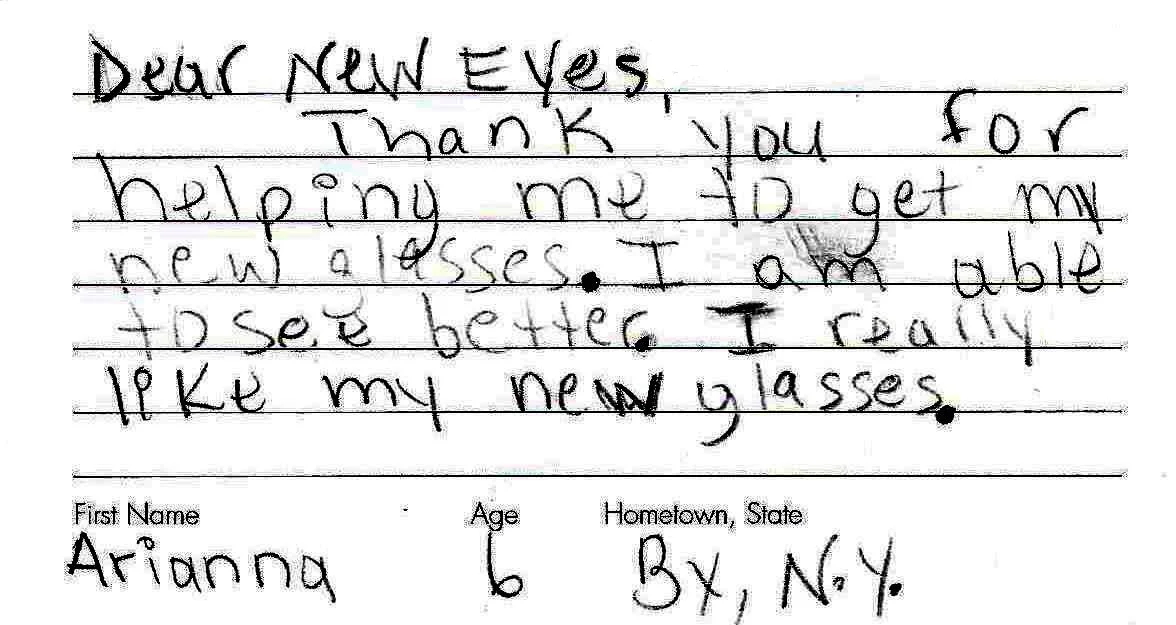 Dear New Eyes,
Thank you for
helping me to get my
new glasses. I am able
to see better. I really
like my new glasses.
First Name Age Hometown, State
Arianna 6 Bx, N.Y.